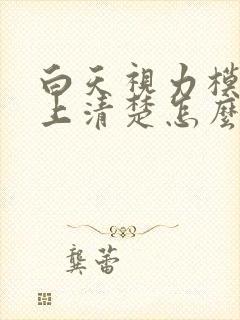 白天視力模
上清楚怎麼
龔蕾